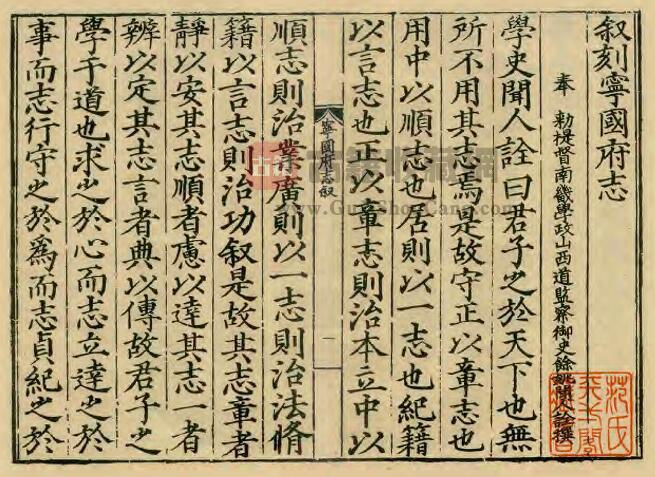 叙刻寧國府志
奉 勑提督南畿學政山西道監察御史餘姚聞人詮撰
學史聞人詮曰君子之於天下也無
所不用其志焉是故守正以章志也
用中以順志也居則以一志也紀籍
以言志也正以章志則治本立中以
寧國府志叙 一
順志則治業廣則以一志則治法脩
籍以言志則治功叙是故其志章者
靜以安其志順者慮以達其志一者
辨以定其志言者典以傳故君子之
學于道也求之於心而志立達之於
事而志行守之於為而志貞紀之於
范氏
天一閣
古籍